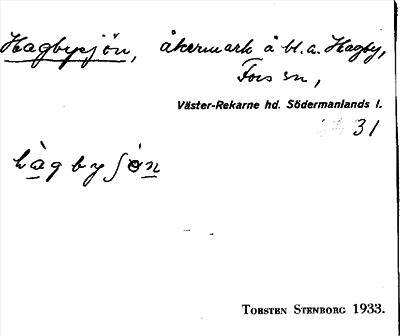 Hagbysjön, åkermark å bl.a. Hagby,
Fors sn,
Väster-Rekarne hd. Södermanlands l.
31
hàgbyʃön
Torsten Stenborg 1933.